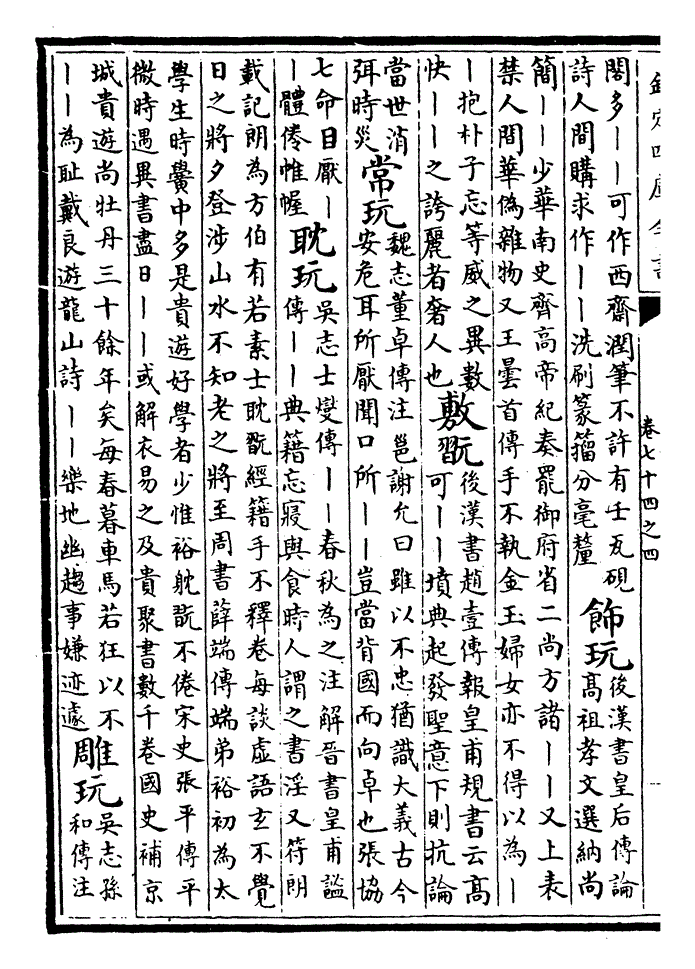 欽定四庫全書
卷七十四之四
閣多——可作西齋潤筆不許有壬瓦硯
詩人間購求作——洗刷篆籀分毫釐
飾玩
後漢書皇后傳論
高祖孝文選納尚
簡——少華南史齊高帝紀奏罷御府省二尚方諸——又上表
禁人間華偽雜物又王曇首傳手不執金玉婦女亦不得以為—
—抱朴子忘等威之異數
快——之誇麗者奢人也
敷翫
後漢書趙壹傳報皇甫規書云高
可——墳典起發聖意下則抗論
當世消
弭時災
常玩
魏志董卓傳注邕謝允曰雖以不忠猶識大義古今
安危耳所厭聞口所——豈當背國而向卓也張協
七命目厭—
—體倦帷幄
耽玩
吳志士燮傳——春秋為之注解晉書皇甫謐
傳——典籍忘寢與食時人謂之書淫又符朗
載記朗為方伯有若素士耽翫經籍手不釋卷每談虛語玄不覺
日之將夕登涉山水不知老之將至周書薛端傳端弟裕初為太
學生時黌中多是貴遊好學者少惟裕躭翫不倦宋史張平傳平
微時遇異書盡日——或解衣易之及貴聚書數千卷國史補京
城貴遊尚牡丹三十餘年矣每春暮車馬若狂以不
——為耻戴良遊龍山詩——樂地幽趨事嫌迹遽
雕玩
吳志孫
和傳注